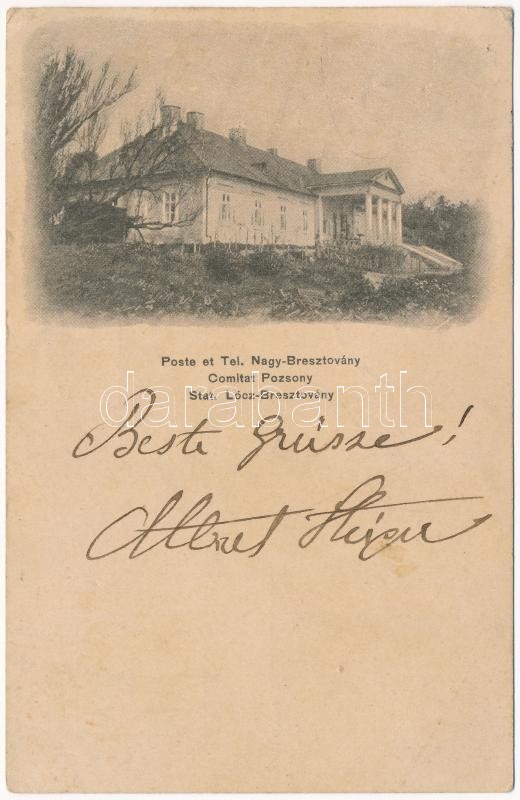 Poste et Tel. Nagy-Bresztovány
Comitat Pozsony
Stat. Lócz-Bresztovány
darabanth
Beste Grüsse!
Albret